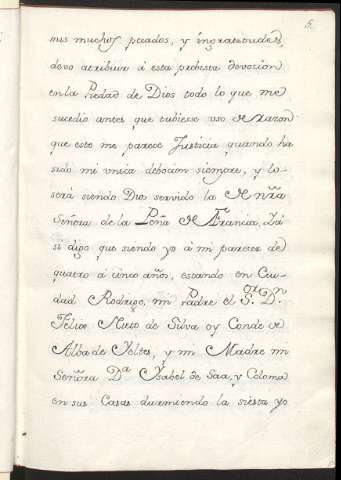 5.
mis muchos pecados, y ingratitudes,
devo atribuir á esta probista devocion
en la Piedad de Dios todo lo que me
sucedió antes que tubiesse uso de razon
que esto me parece Justicia quando ha
sido mi unica debocion siempre, y lo
será siendo Dios servido la de Nrã
Señora de la Peña de Francia, Y á
si digo que siendo yo á mi parecer de
quatro á cinco años, estando en Ciu-
dad Rodrigo, mi Padre el S.or D.n
Felix Nieto de Silva oy Conde de
Alba de Yeltes, y mi Madre mi
Señora D.a Ysabel de Saa, y Coloma
en sus Casas durmiendo la siesta yo